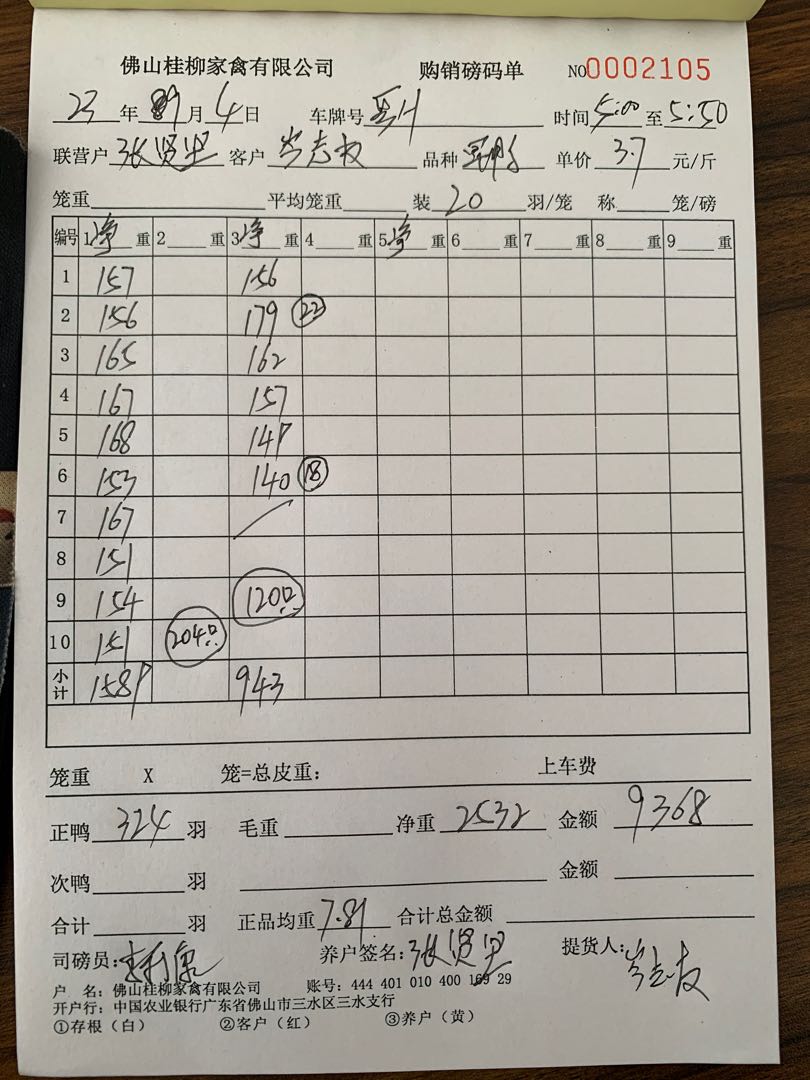 佛山桂柳家禽有限公司 购销磅码单 NO0002105
23 年 9 月 4 日 车牌号 时间 5:00 至 5:50
联营户 张贤坚 客户 岑志权 品种 单价 3.7 元/斤
笼重 平均笼重 装 20 羽/笼 称 笼/磅
编号 1 净 重 2 重 3 净 重 4 重 5 净 重 6 重 7 重 8 重 9 重
1 157 156
2 156 179 22
3 165 162
4 167 157
5 168 149
6 153 140 18
7 167
8 151
9 154 120只
10 151 204只
小计 1589 943
笼重 X 笼=总皮重: 上车费
正鸭 324 羽 毛重 净重 2532 金额 9368
次鸭 羽 金额
合计 羽 正品均重 7.81 合计总金额
司磅员: 养户签名: 张贤坚 提货人: 岑志权
户 名: 佛山桂柳家禽有限公司 账号: 444 401 010 400 169 29
开户行: 中国农业银行广东省佛山市三水区三水支行
①存根（白） ②客户（红） ③养户（黄）